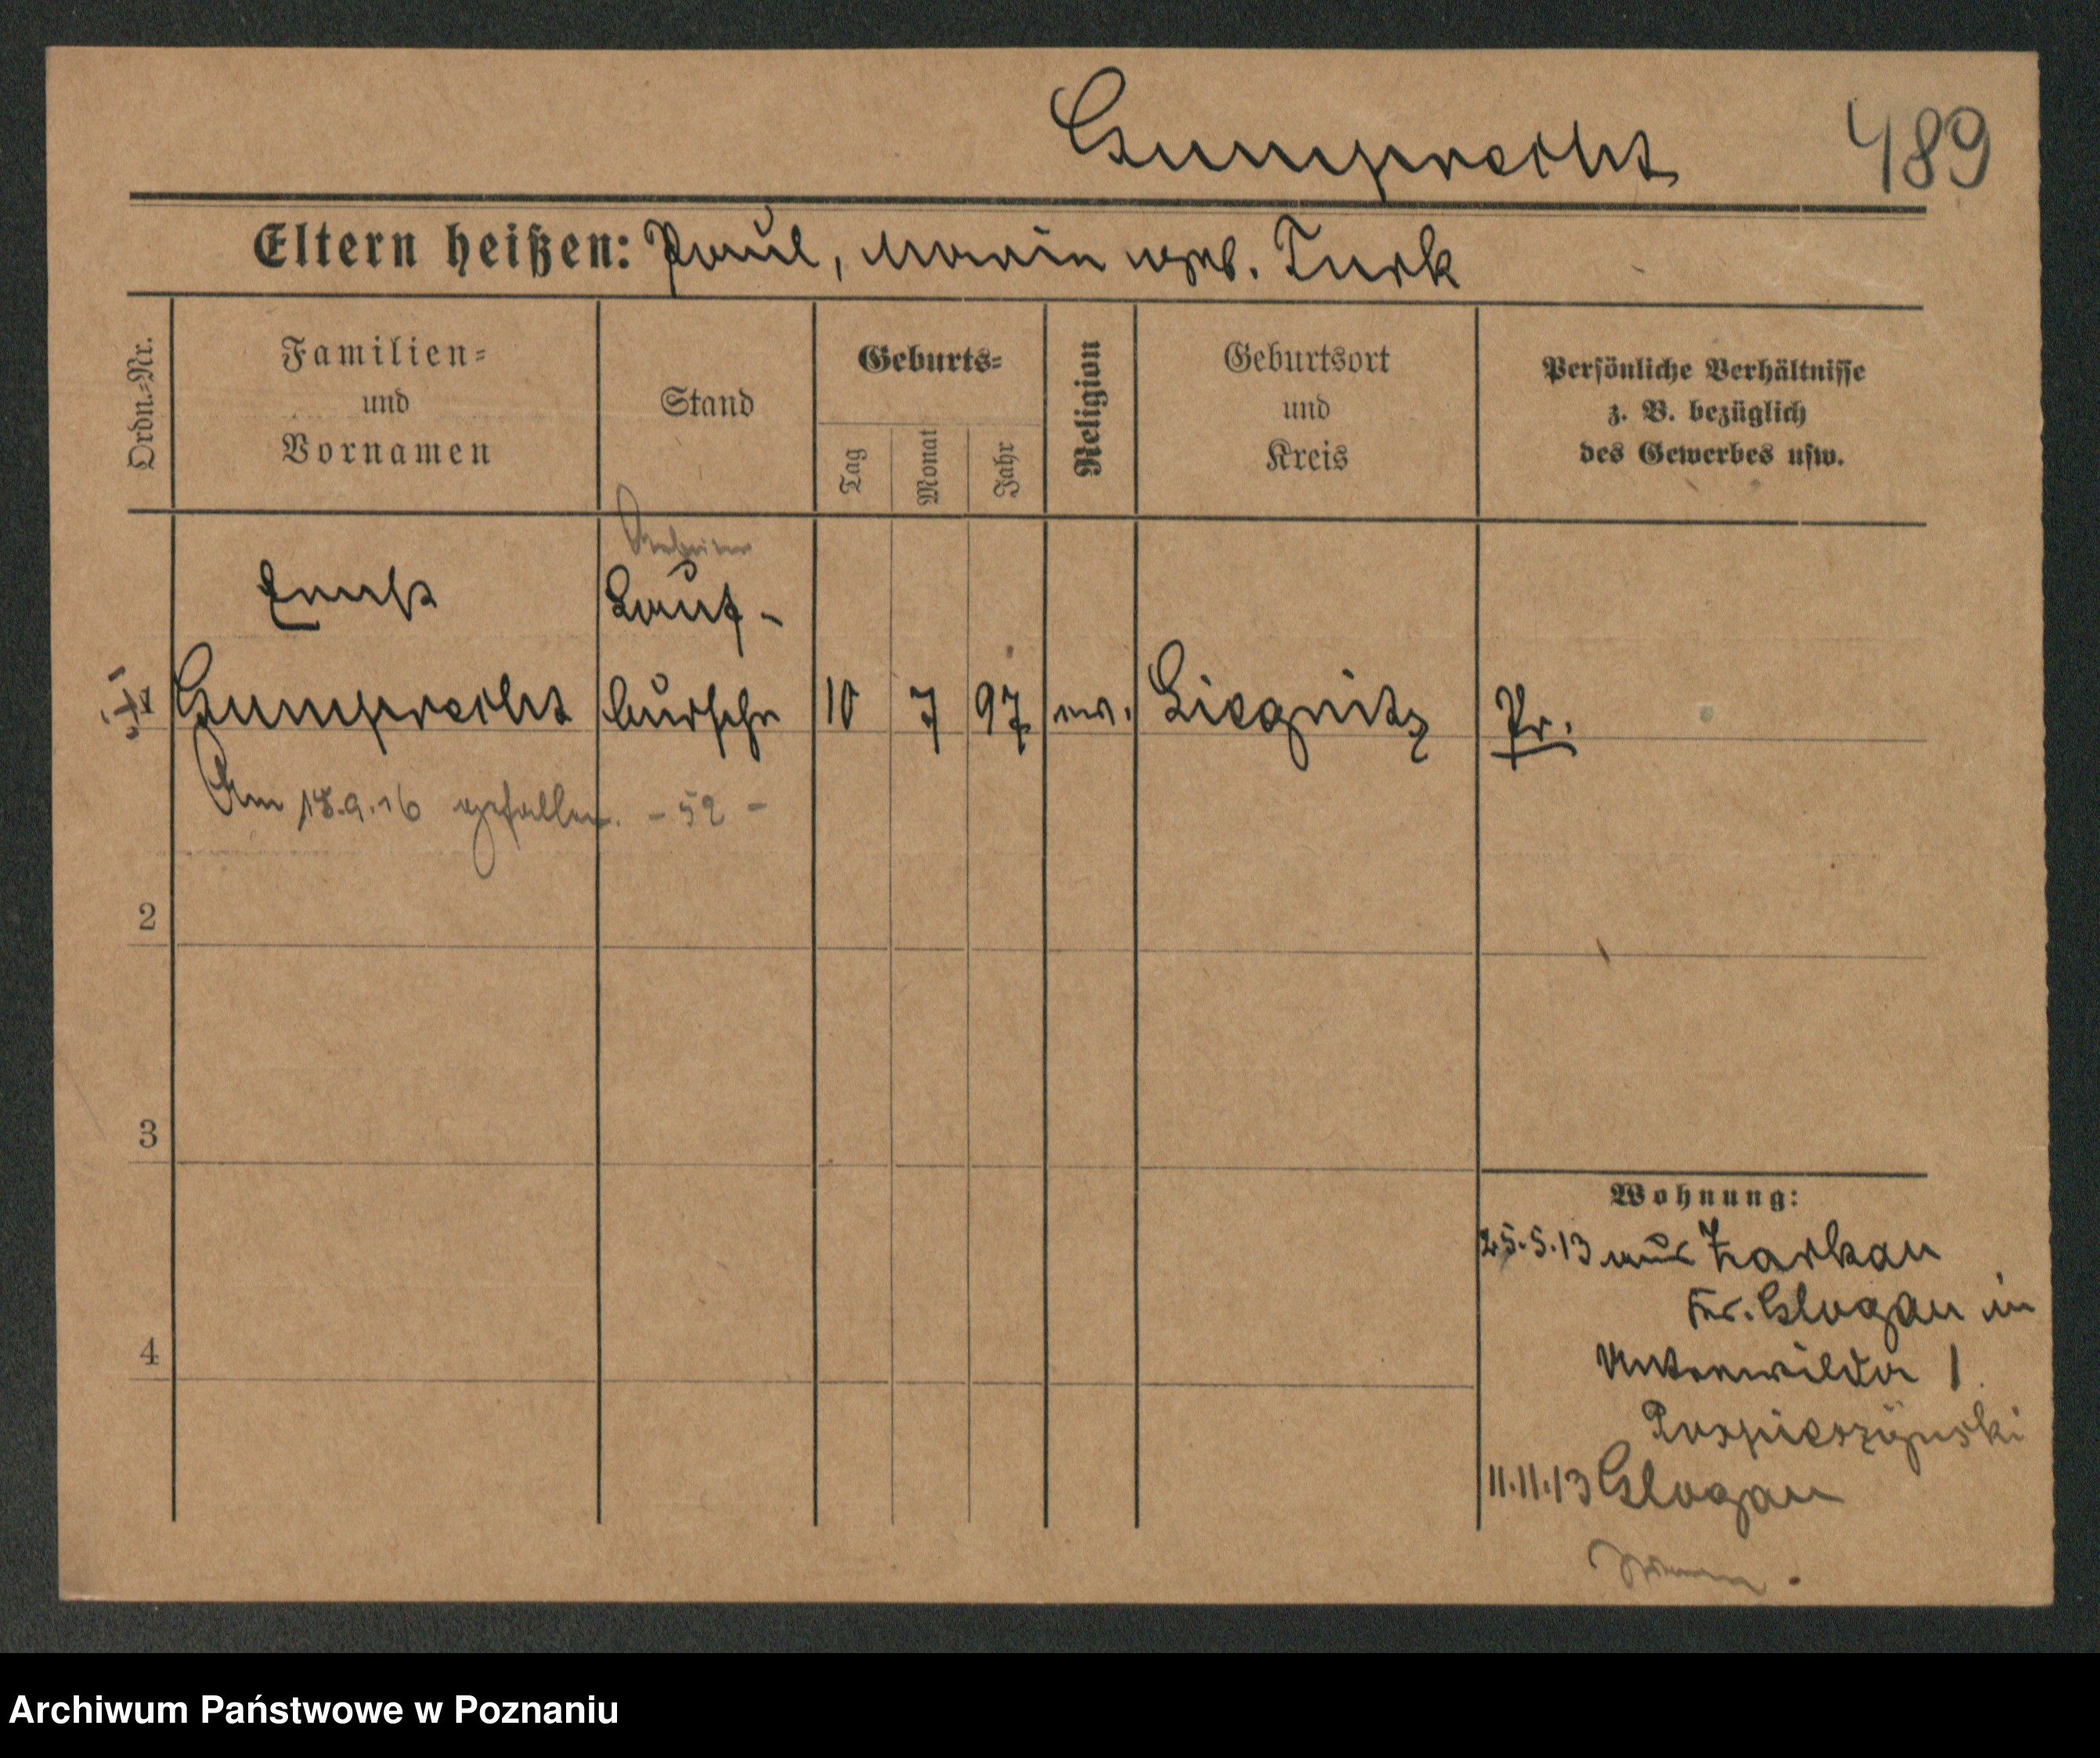 Gumprecht 489
Eltern heißen: Paul, Marie geb. Turk
Ordn.-Nr.
Familien-
und
Vornamen
Stand
Geburts-
Tag
Monat
Jahr
Religion
Geburtsort
und
Kreis
Persönliche Verhältnisse
z. B. bezüglich
des Gewerbes usw.
Arbeiter
Ernst Lauf-
1 Gumprecht bursche 10 7 97 ev. Liegnitz Pr.
Am 18.9.16 gefallen. - 52 -
2
3
4
Wohnung:
25.5.13 aus Zarkau
Kr. Glogau in
Unterwilda 1
Pospieszynski
11.11.13 Glogau
Archiwum Państwowe w Poznaniu